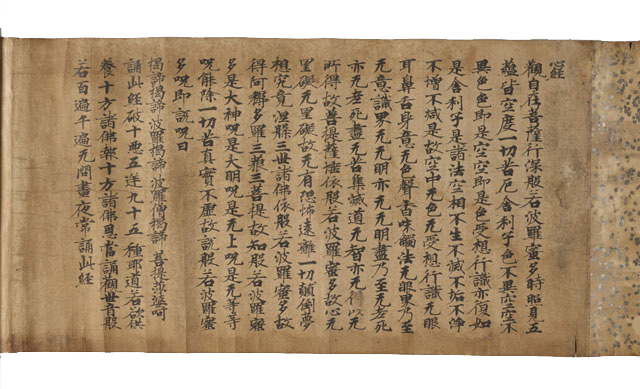 心経
觀自在菩薩行深般若波羅蜜多時照見五
蘊皆空度一切苦厄舍利子色不異空空不
異色色即是空空即是色受想行識亦復如
是舍利子是諸法空相不生不滅不垢不淨
不增不減是故空中无色无受想行識无眼
耳鼻舌身意无色聲香味觸法无眼界乃至
无意識界无无明亦无无明盡乃至无老死
亦无老死盡无苦集滅道无智亦无得以无
所得故菩提薩埵依般若波羅蜜多故心无
罣礙无罣礙故无有恐怖遠離一切顛倒夢
想究竟涅槃三世諸佛依般若波羅蜜多故
得阿耨多羅三藐三菩提故知般若波羅蜜
多是大神呪是大明呪是无上呪是无等等
呪能除一切苦真實不虛故說般若波羅蜜
多呪即說呪曰
揭諦揭諦 波羅揭諦 波羅僧揭諦 菩提莎婆呵
誦此經破十惡五逆九十五種耶道若欲供
養十方諸佛報十方諸佛恩當誦觀世音般
若百遍千遍无間晝夜常誦此經